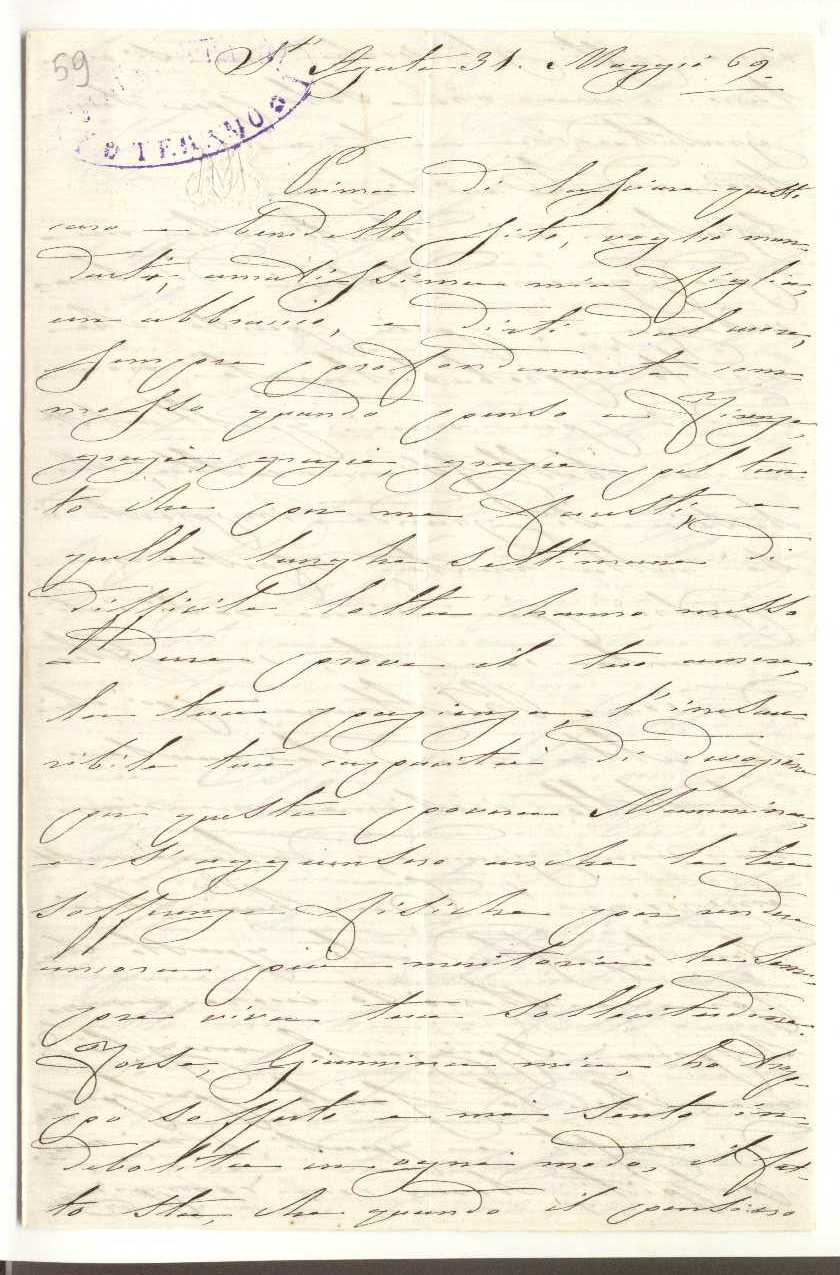 59
DI TERAMO
St Agata 31. Maggio 69.
Prima di lasciare questo
caro e benedetto sito, voglio man-
darti, amatissima mia figlia,
un abbraccio, e dirti dal cuore,
sempre profondamente com-
mosso quando penso a Firenze,
grazie, grazie, grazie pel tan-
to che per me facesti, e
quelle lunghe settimane di
difficile lotta hanno messo
a dura prova il tuo amore,
la tua pazienza, l'inesau-
ribile tua capacità di divozione
per questa povera Mammina,
e s'aggiunsero anche le tue
sofferenze fisiche per render
ancora più meritoria la sem-
pre viva tua sollecitudine.
Forse, Giannina mia, ho trop-
po sofferto e mi sento in-
debolita in ogni modo, il fat-
to sta, che quando il pensiero